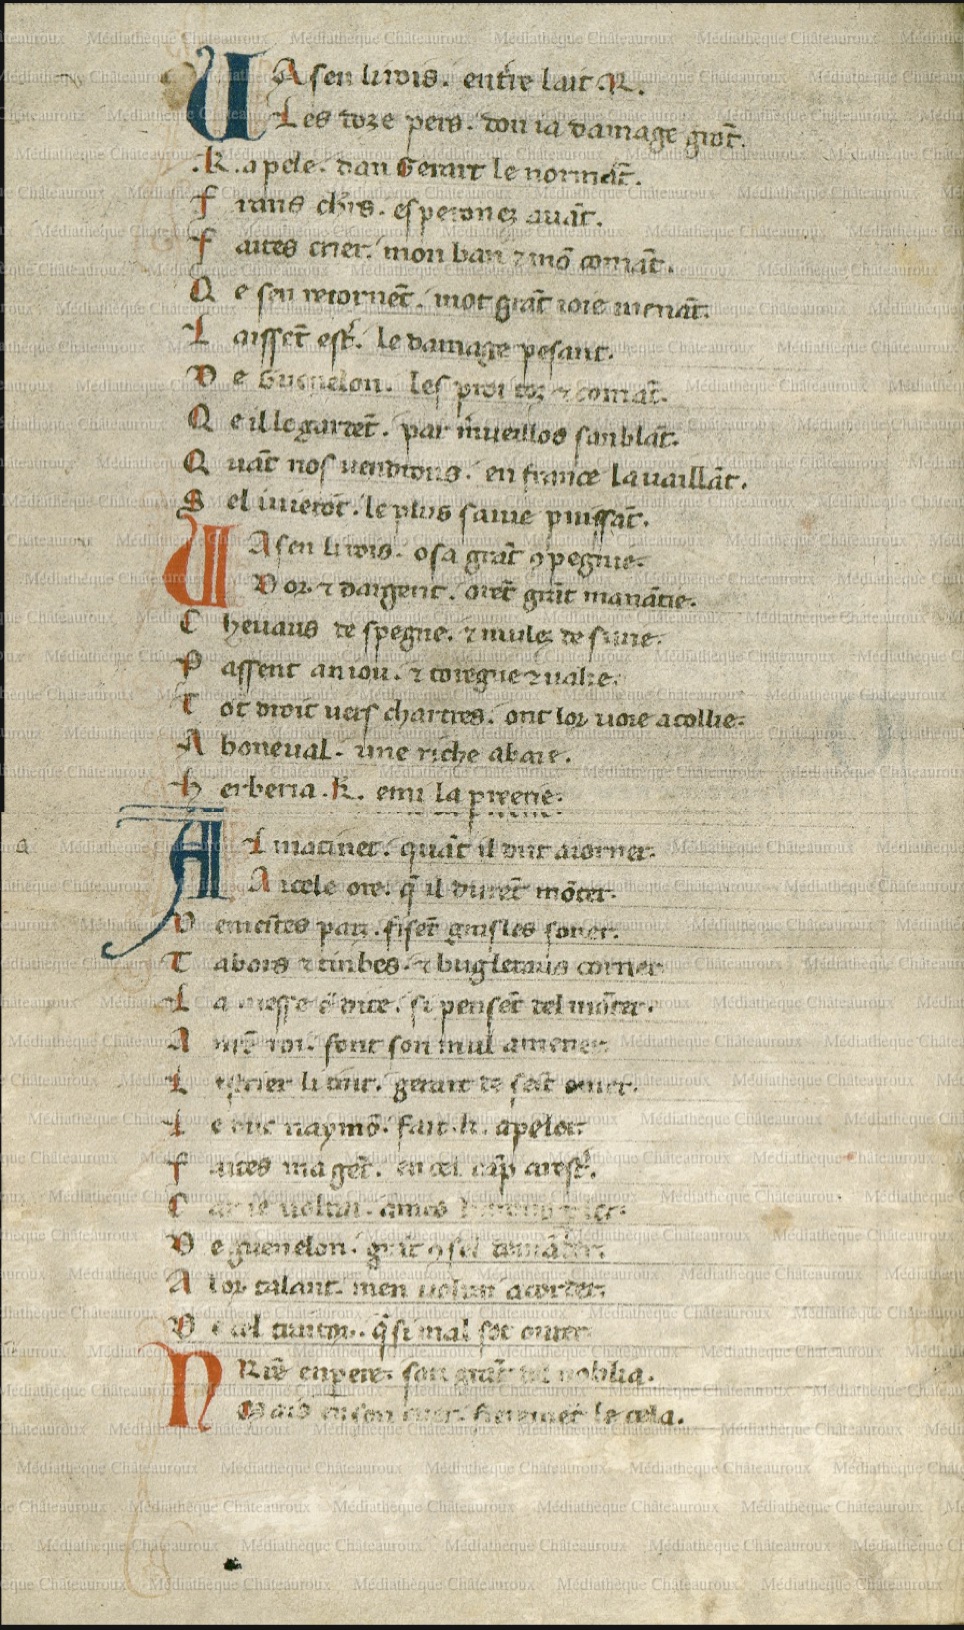 VA sen li rois. entre lait .R.
Les doze pers. don ia damage grāt.
.K. apele. dan Gerart le normāt.
Frans chrs. esperonez auāt.
Faites crier. mon ban ⁊ mō comāt.
Qe sen retornēt. mot grāt ioie menāt.
Laissēt estr. le damage pesant.
De Guenelon. les proi toz ⁊ comāt.
Qe il le gardēt. par mueillos sanblāt.
Quāt nos vendrons. en france la vaillāt.
Sel iuierōt. le plus saiue puissāt.
VA sen li rois. o sa grāt ꝯpegnie.
Dor ⁊ dargent. orēt grāt manātie.
Chevaus de spegne. ⁊ mulez de surie.
Passent aniou. ⁊ toregne ⁊ valie.
Tot droit vers chartres. ont lor voie acollie.
A boneval. une riche abaie.
herberia .K. enmi la preerie.
AL matinet. quāt il dut aiorner.
A icele ore. q̄ il durēt mōter.
De maītes parz. fisēt gresles soner.
Tabors ⁊ tinbes. ⁊ bugleraus corner
La messe ē dite. si pensēt del mōter.
A nrē roi. font son mul amener.
Lestrier li tint. gerart de
Le duc naymō. fait .K. apeler.
Faites ma gēt. en cel cāp arestr.
Car ie voldrai. a mes
De guenelon. grāt ꝯseil demāder.
A lor talant. men voldrai acorder.
De cel traitor. q̄ si mal sot ourer
NRē enpere. son grāt dil noblia.
Mais en son cuer. le cela.